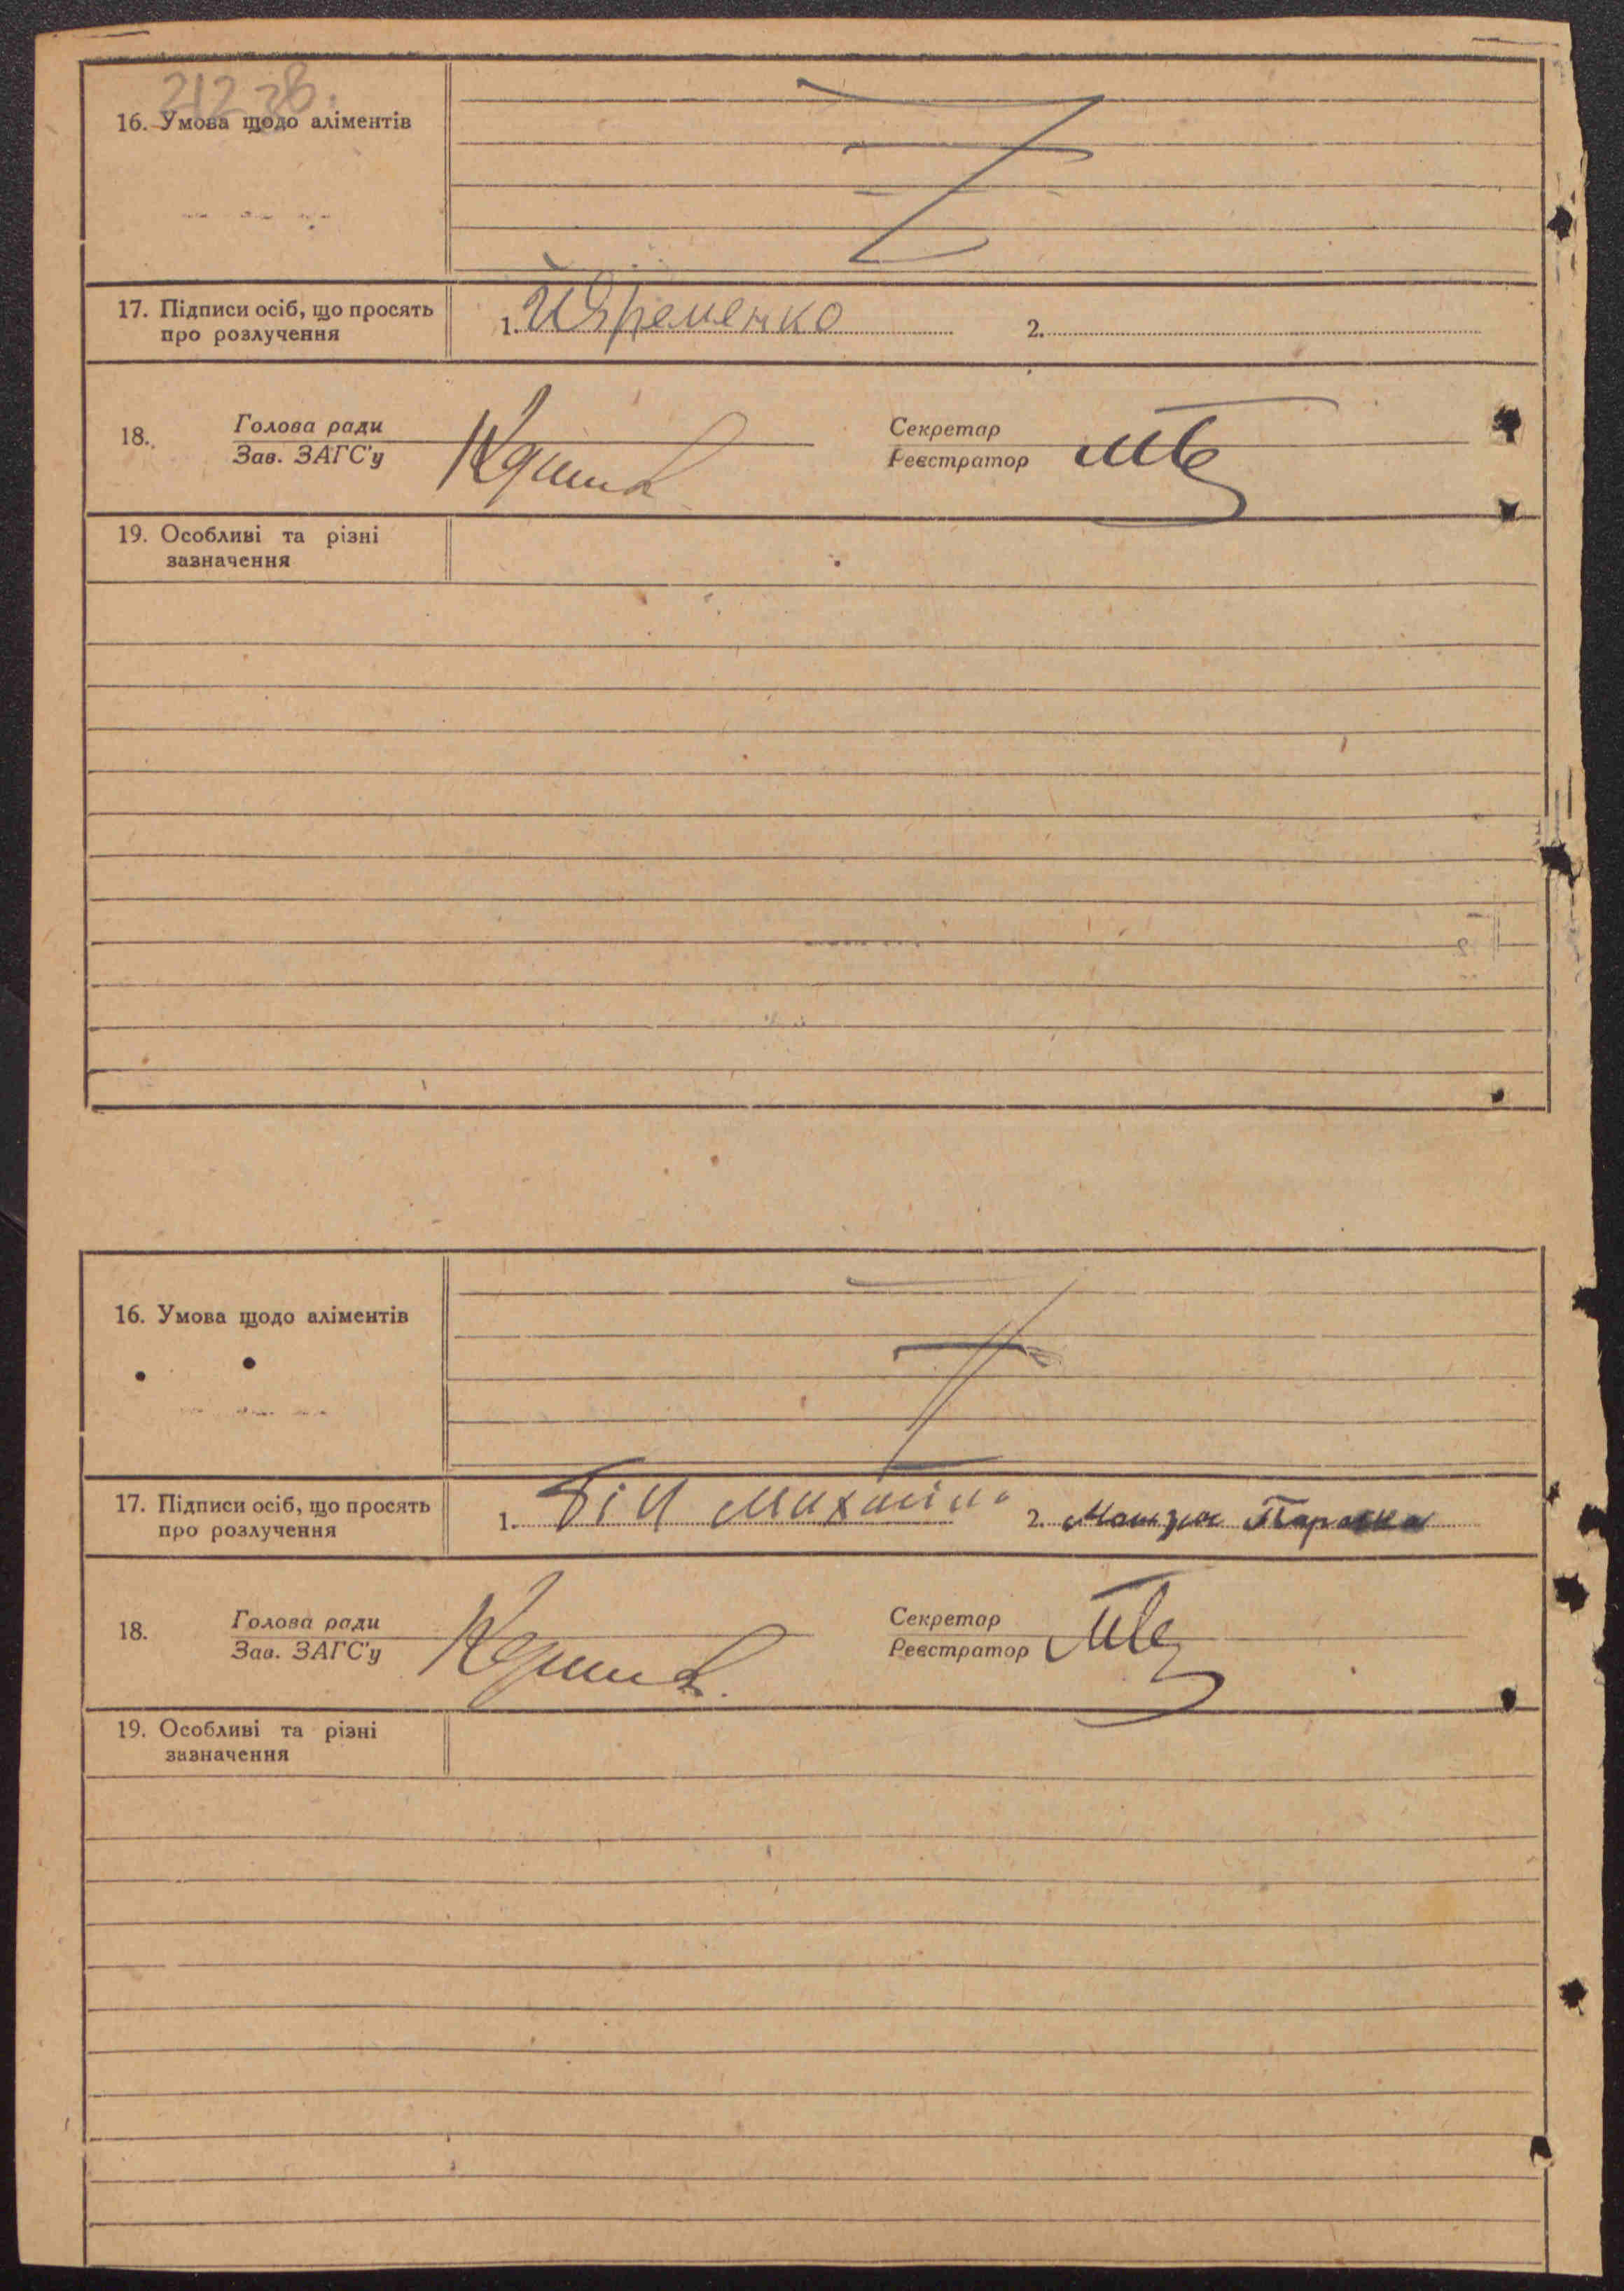 212 зв.
16. Умова щодо аліментів
17. Підписи осіб, що просять
про розлучення
1. Яременко 2.
18. Голова ради
Зав. ЗАГС'у
Секретар
Реєстратор
19. Особливі та різні
зазначення
16. Умова щодо аліментів
17. Підписи осіб, що просять
про розлучення
1. Біл 2. Параска
18. Голова ради
Зав. ЗАГС'у
Секретар
Реєстратор
19. Особливі та різні
зазначення